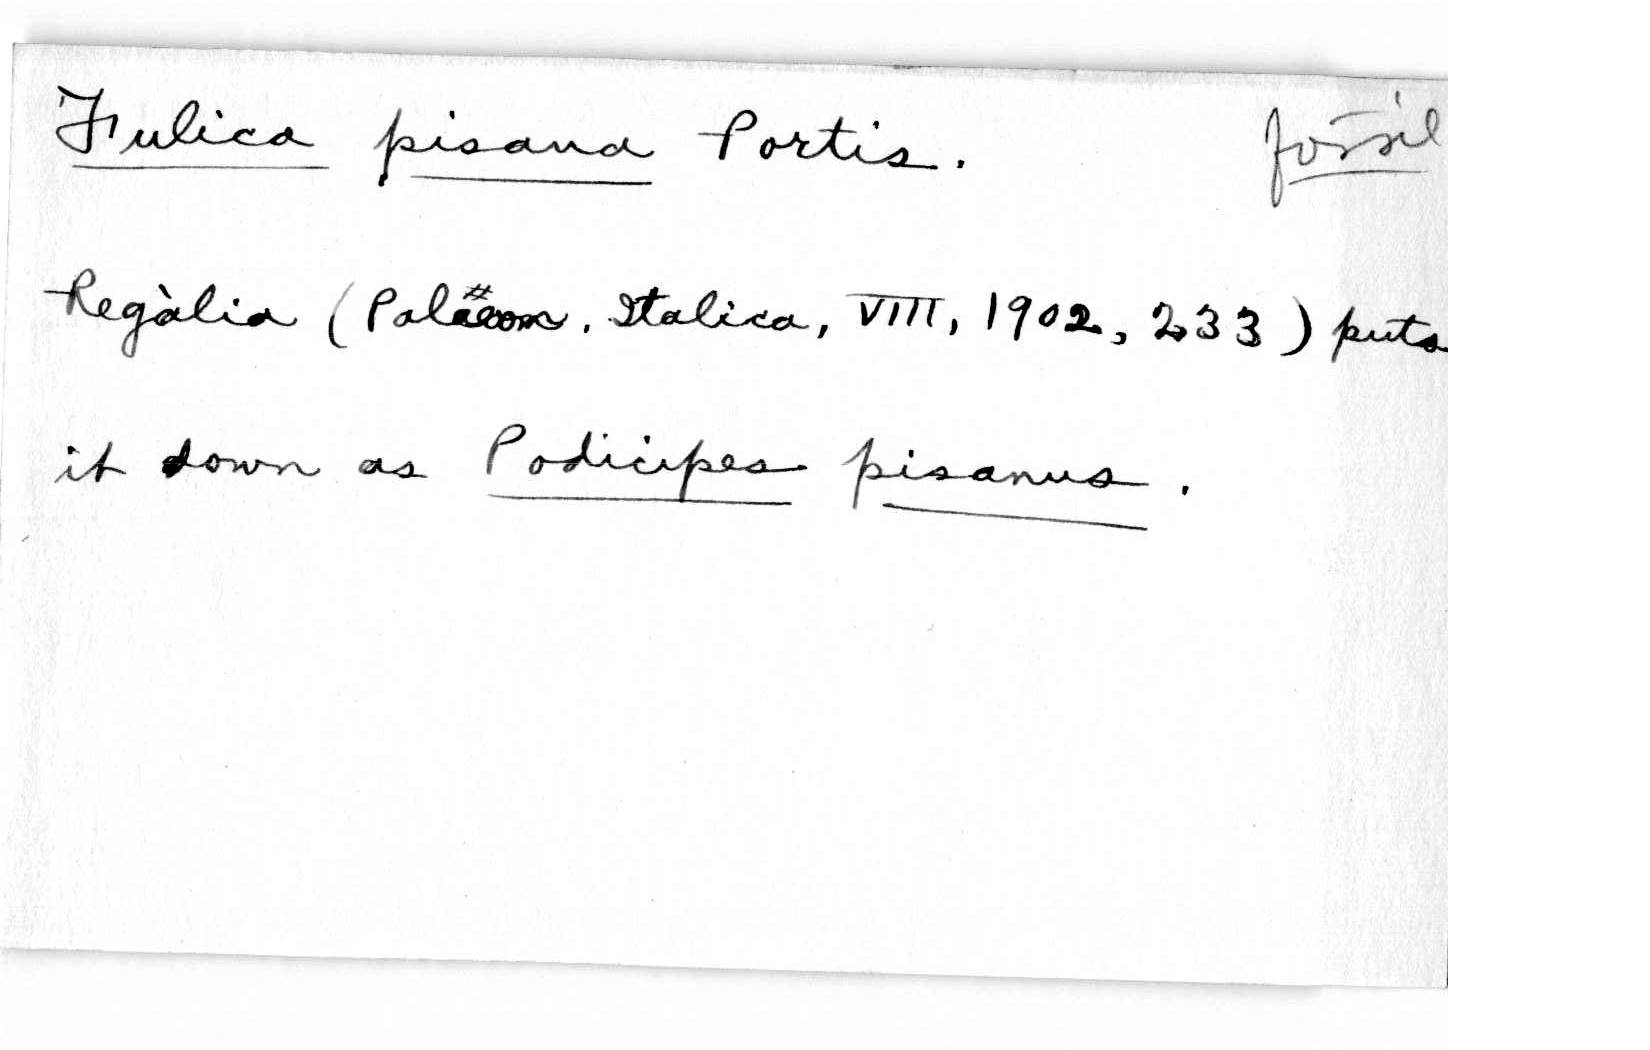 Fulica pisana Portis. fossil
Regàlia (Palæon. Italica, VIII, 1902, 233) puts
it down as Podicipes pisanus.